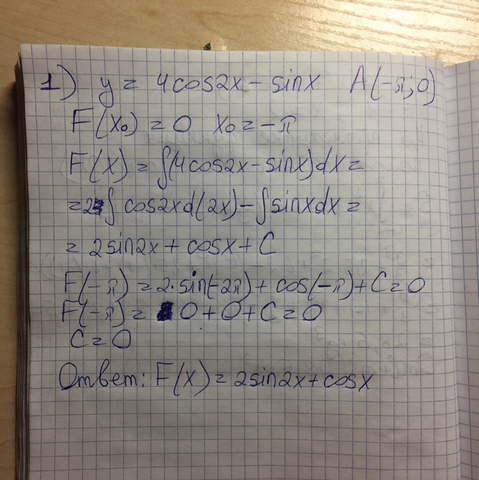 1) y = 4cos2x - sinx A(-π; 0)
F(x₀) = 0 x₀ = -π
F(x) = ∫(4cos2x - sinx)dx =
= 2∫ cos2xd(2x) - ∫sinxdx =
= 2sin2x + cosx + C
F(-π) = 2·sin(-2π) + cos(-π) + C = 0
F(-π) = 0 + 0 + C = 0
C = 0
Ответ: F(x) = 2sin2x + cosx